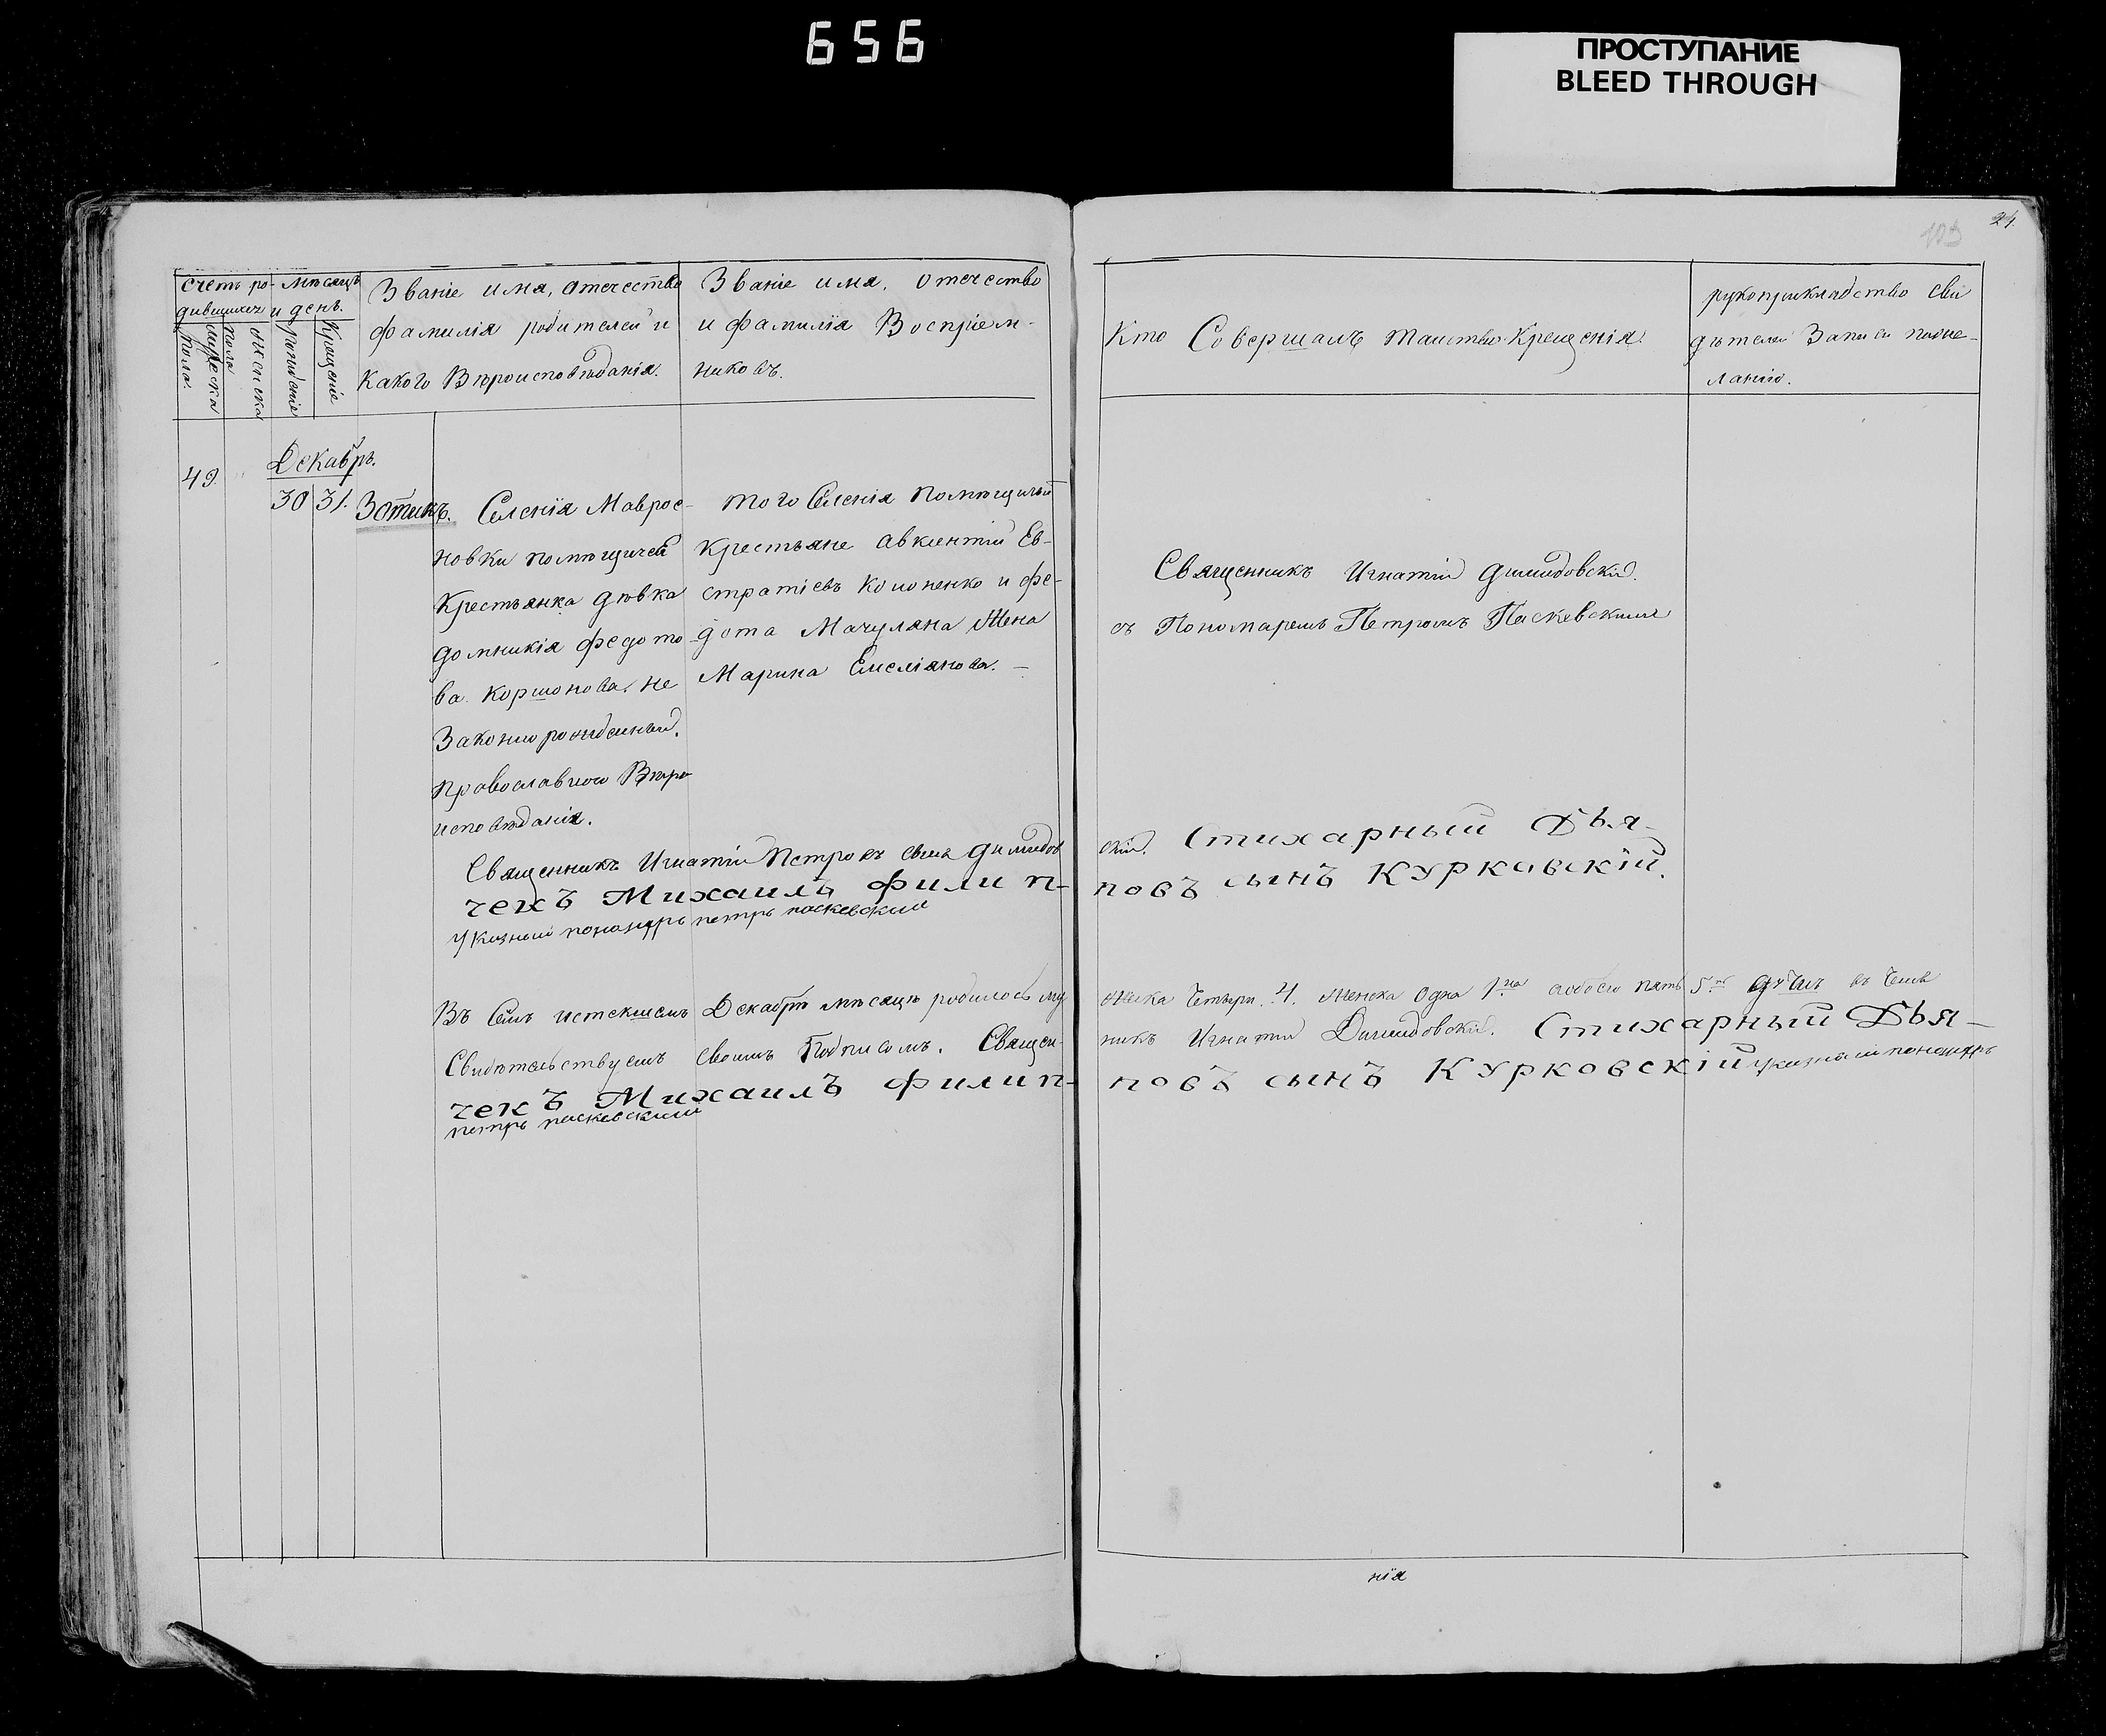 656
ПРОСТУПАНИЕ
BLEED THROUGH
24.
103
Счетъ ро-
дившихся
Мѣсяцъ
и день.
мужеска
пола.
женска
пола
рожденіе
Крещеніе
Званіе имя, отечество
фамилія родителей и
какого Вѣроисповѣданія.
Званіе имя, отечество
и фамилія Воспріем-
никовъ.
Кто Совершалъ таинство Крещенія.
рукоприкладство сви
дѣтелей Записи по же-
ланію.
49.
Декабрь.
30 31. Зотикъ.
Селенія Маврос-
новки помѣщичей
Крестьянка дѣвка
домникія федото
ва Коршонова. не
Законно рожденный.
православного Вѣро
исповѣданія.
того Селенія помѣщичьи
крестьяне авкентій Ев-
стратіевъ Кононенко и фе-
дота Мачуляна Жена
Марина Емеліянова. –
Священникъ Игнатій Димидовскій.
съ Пономаремъ Петромъ Паскевскимъ
Священникъ Игнатій Петровъ сынъ Димидов
скій. Стихарный Дья-
чекъ Михаилъ Филип-
повъ сынъ Курковскій.
Указный пономарь петръ паскевский
Въ Семъ истекшемъ Декабрѣ мѣсяцѣ родилось му
жеска Четыри. 4. Женска Одна 1на обоего пять 5ть дѣтей въ чемъ
Свидѣтельствуемъ своимъ Подписомъ. Священ-
никъ Игнатій Димидовскій. Стихарный Дья-
чекъ Михаилъ Филип-
повъ сынъ Курковскій указный пономарь
петръ паскевский
нія